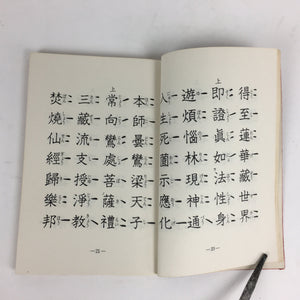 上
得至蓮華藏世界
即證眞如法性身
遊煩惱林現神通
入生死薗示應化
—20—
上
本師曇鸞梁天子
常向鸞處菩薩禮
三藏流支授淨教
焚燒仙經歸樂邦
—21—